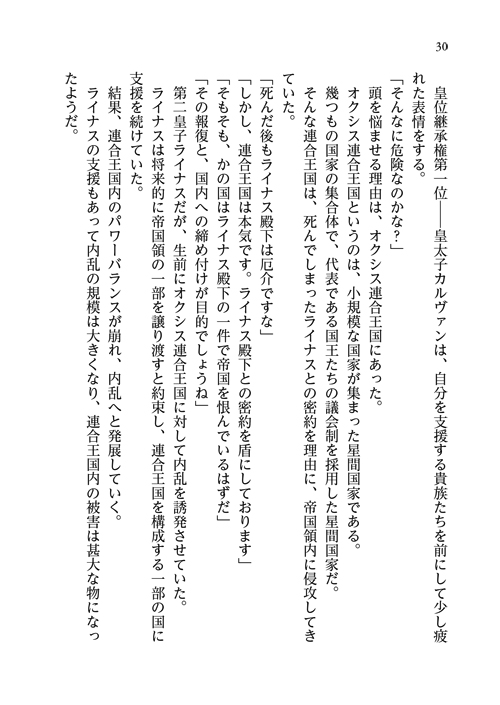 30
皇位継承権第一位――皇太子カルヴァンは、自分を支援する貴族たちを前にして少し疲
れた表情をする。
「そんなに危険なのかな？」
頭を悩ませる理由は、オクシス連合王国にあった。
オクシス連合王国というのは、小規模な国家が集まった星間国家である。
幾つもの国家の集合体で、代表である国王たちの議会制を採用した星間国家だ。
そんな連合王国は、死んでしまったライナスとの密約を理由に、帝国領内に侵攻してき
ていた。
「死んだ後もライナス殿下は厄介ですな」
「しかし、連合王国は本気です。ライナス殿下との密約を盾にしております」
「そもそも、かの国はライナス殿下の一件で帝国を恨んでいるはずだ」
「その報復と、国内への締め付けが目的でしょうね」
第二皇子ライナスだが、生前にオクシス連合王国に対して内乱を誘発させていた。
ライナスは将来的に帝国領の一部を譲り渡すと約束し、連合王国を構成する一部の国に
支援を続けていた。
結果、連合王国内のパワーバランスが崩れ、内乱へと発展していく。
ライナスの支援もあって内乱の規模は大きくなり、連合王国内の被害は甚大な物になっ
たようだ。